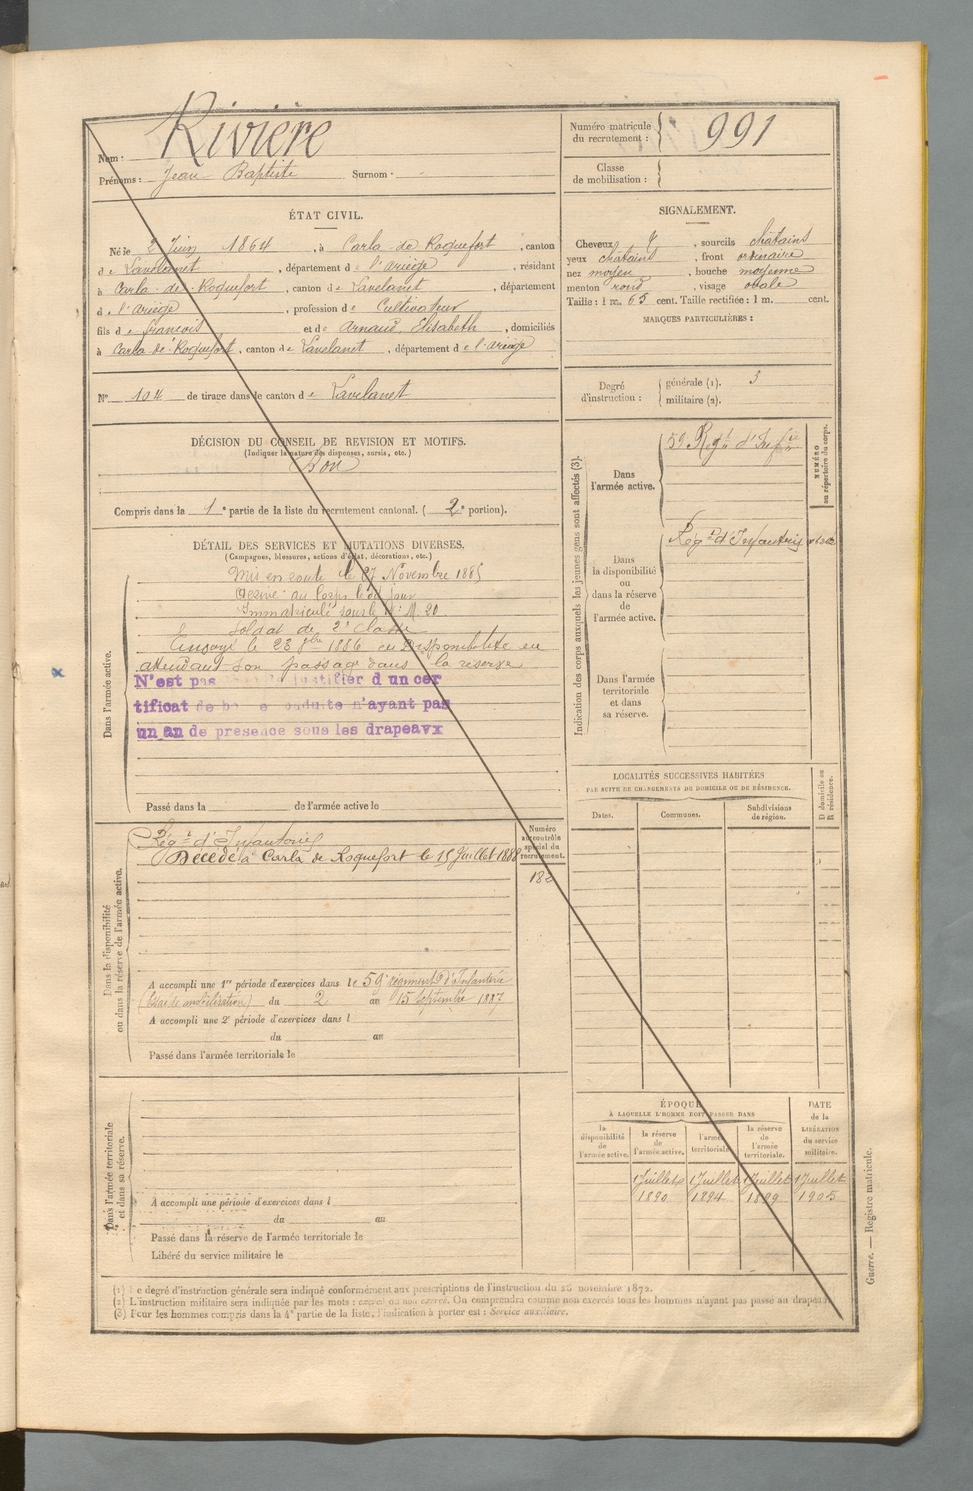 Nom : Rivière
Prénoms : Jean Baptiste Surnom : -
Numéro matricule
du recrutement : 991
Classe
de mobilisation :
ÉTAT CIVIL.
Né le 2 Juin 1864, à Carla de Roquefort, canton
de Lavelanet, département de l'ariège, résidant
à Carla de Roquefort, canton de Lavelanet, département
d l'ariège, profession de Cultivateur
fils de françois et de Arnaud Elisabeth, domiciliés
à Carla de Roquefort, canton de Lavelanet, département de l'ariège
N° 104 de tirage dans le canton de Lavelanet
SIGNALEMENT.
Cheveux & , sourcils châtains
yeux châtains, front ordinaire
nez moyen, bouche moyenne
menton rond, visage ovale
Taille : 1 m. 65 cent. Taille rectifiée : 1 m. cent.
MARQUES PARTICULIÈRES :
Degré
d'instruction :
générale (1). 3
militaire (2).
DÉCISION DU CONSEIL DE REVISION ET MOTIFS.
(Indiquer la nature des dispenses, sursis, etc.)
Bon
Compris dans la 1e partie de la liste du recrutement cantonal. ( 2e portion).
DÉTAIL DES SERVICES ET MUTATIONS DIVERSES.
(Campagnes, blessures, actions d'éclat, décorations, etc.)
Dans l'armée active.
Mis en route le 27 Novembre 1885
Arrivé au Corps le dit jour
Immatriculé sous le N° M. 20
Soldat de 2e Classe
Envoyé le 23 7bre 1886 en Disponibilité en
attendant son passage dans la réserve
N'est pas justifier d un cer
tificat de b e nduite n'ayant pas
un an de présence sous les drapeavx
Passé dans la de l'armée active le
Dans la disponibilité
ou dans la réserve de l'armée active.
Régt d'Infanterie
Décédé à Carla de Roquefort le 15 Juillet 1888
Numéro
au contrôle
spécial du
recrutement.
182
A accompli une 1re période d'exercices dans le 59e régiment d'Infanterie
(Essai de mobilisation) du 2 au 15 Septembre 1887
A accompli une 2e période d'exercices dans l
du au
Passé dans l'armée territoriale le
Dans l'armée territoriale
et dans sa réserve.
A accompli une période d'exercices dans l
du au
Passé dans la réserve de l'armée territoriale le
Libéré du service militaire le
Indication des corps auxquels les jeunes gens sont affectés (3).
NUMÉRO
au répertoire du corps.
Dans
l'armée active.
59 Régt d'Infie
Dans
la disponibilité
ou
dans la réserve
de
l'armée active.
Régt d'Infanterie
Dans l'armée
territoriale
et dans
sa réserve.
LOCALITÉS SUCCESSIVES HABITÉES
PAR SUITE DE CHANGEMENTS DE DOMICILE OU DE RÉSIDENCE.
Dates.
Communes.
Subdivisions
de région.
D domicile ou
R résidence.
ÉPOQUE
À LAQUELLE L'HOMME DOIT PASSER DANS
la
disponibilité
de
l'armée active.
la réserve
de
l'armée active.
l'armée
territoriale.
la réserve
de
l'armée
territoriale.
DATE
de la
LIBÉRATION
du service
militaire.
1 Juillet 1 Juillet 1 Juillet 1 Juillet
1890 1894 1899 1905
(1) Le degré d'instruction générale sera indiqué conformément aux prescriptions de l'instruction du 26 novembre 1872.
(2) L'instruction militaire sera indiquée par les mots : exercé ou non exercé. On comprendra comme non exercés tous les hommes n'ayant pas passé au drapeau.
(3) Pour les hommes compris dans la 4e partie de la liste, l'indication à porter est : Service auxiliaire.
Guerre. — Registre matricule.